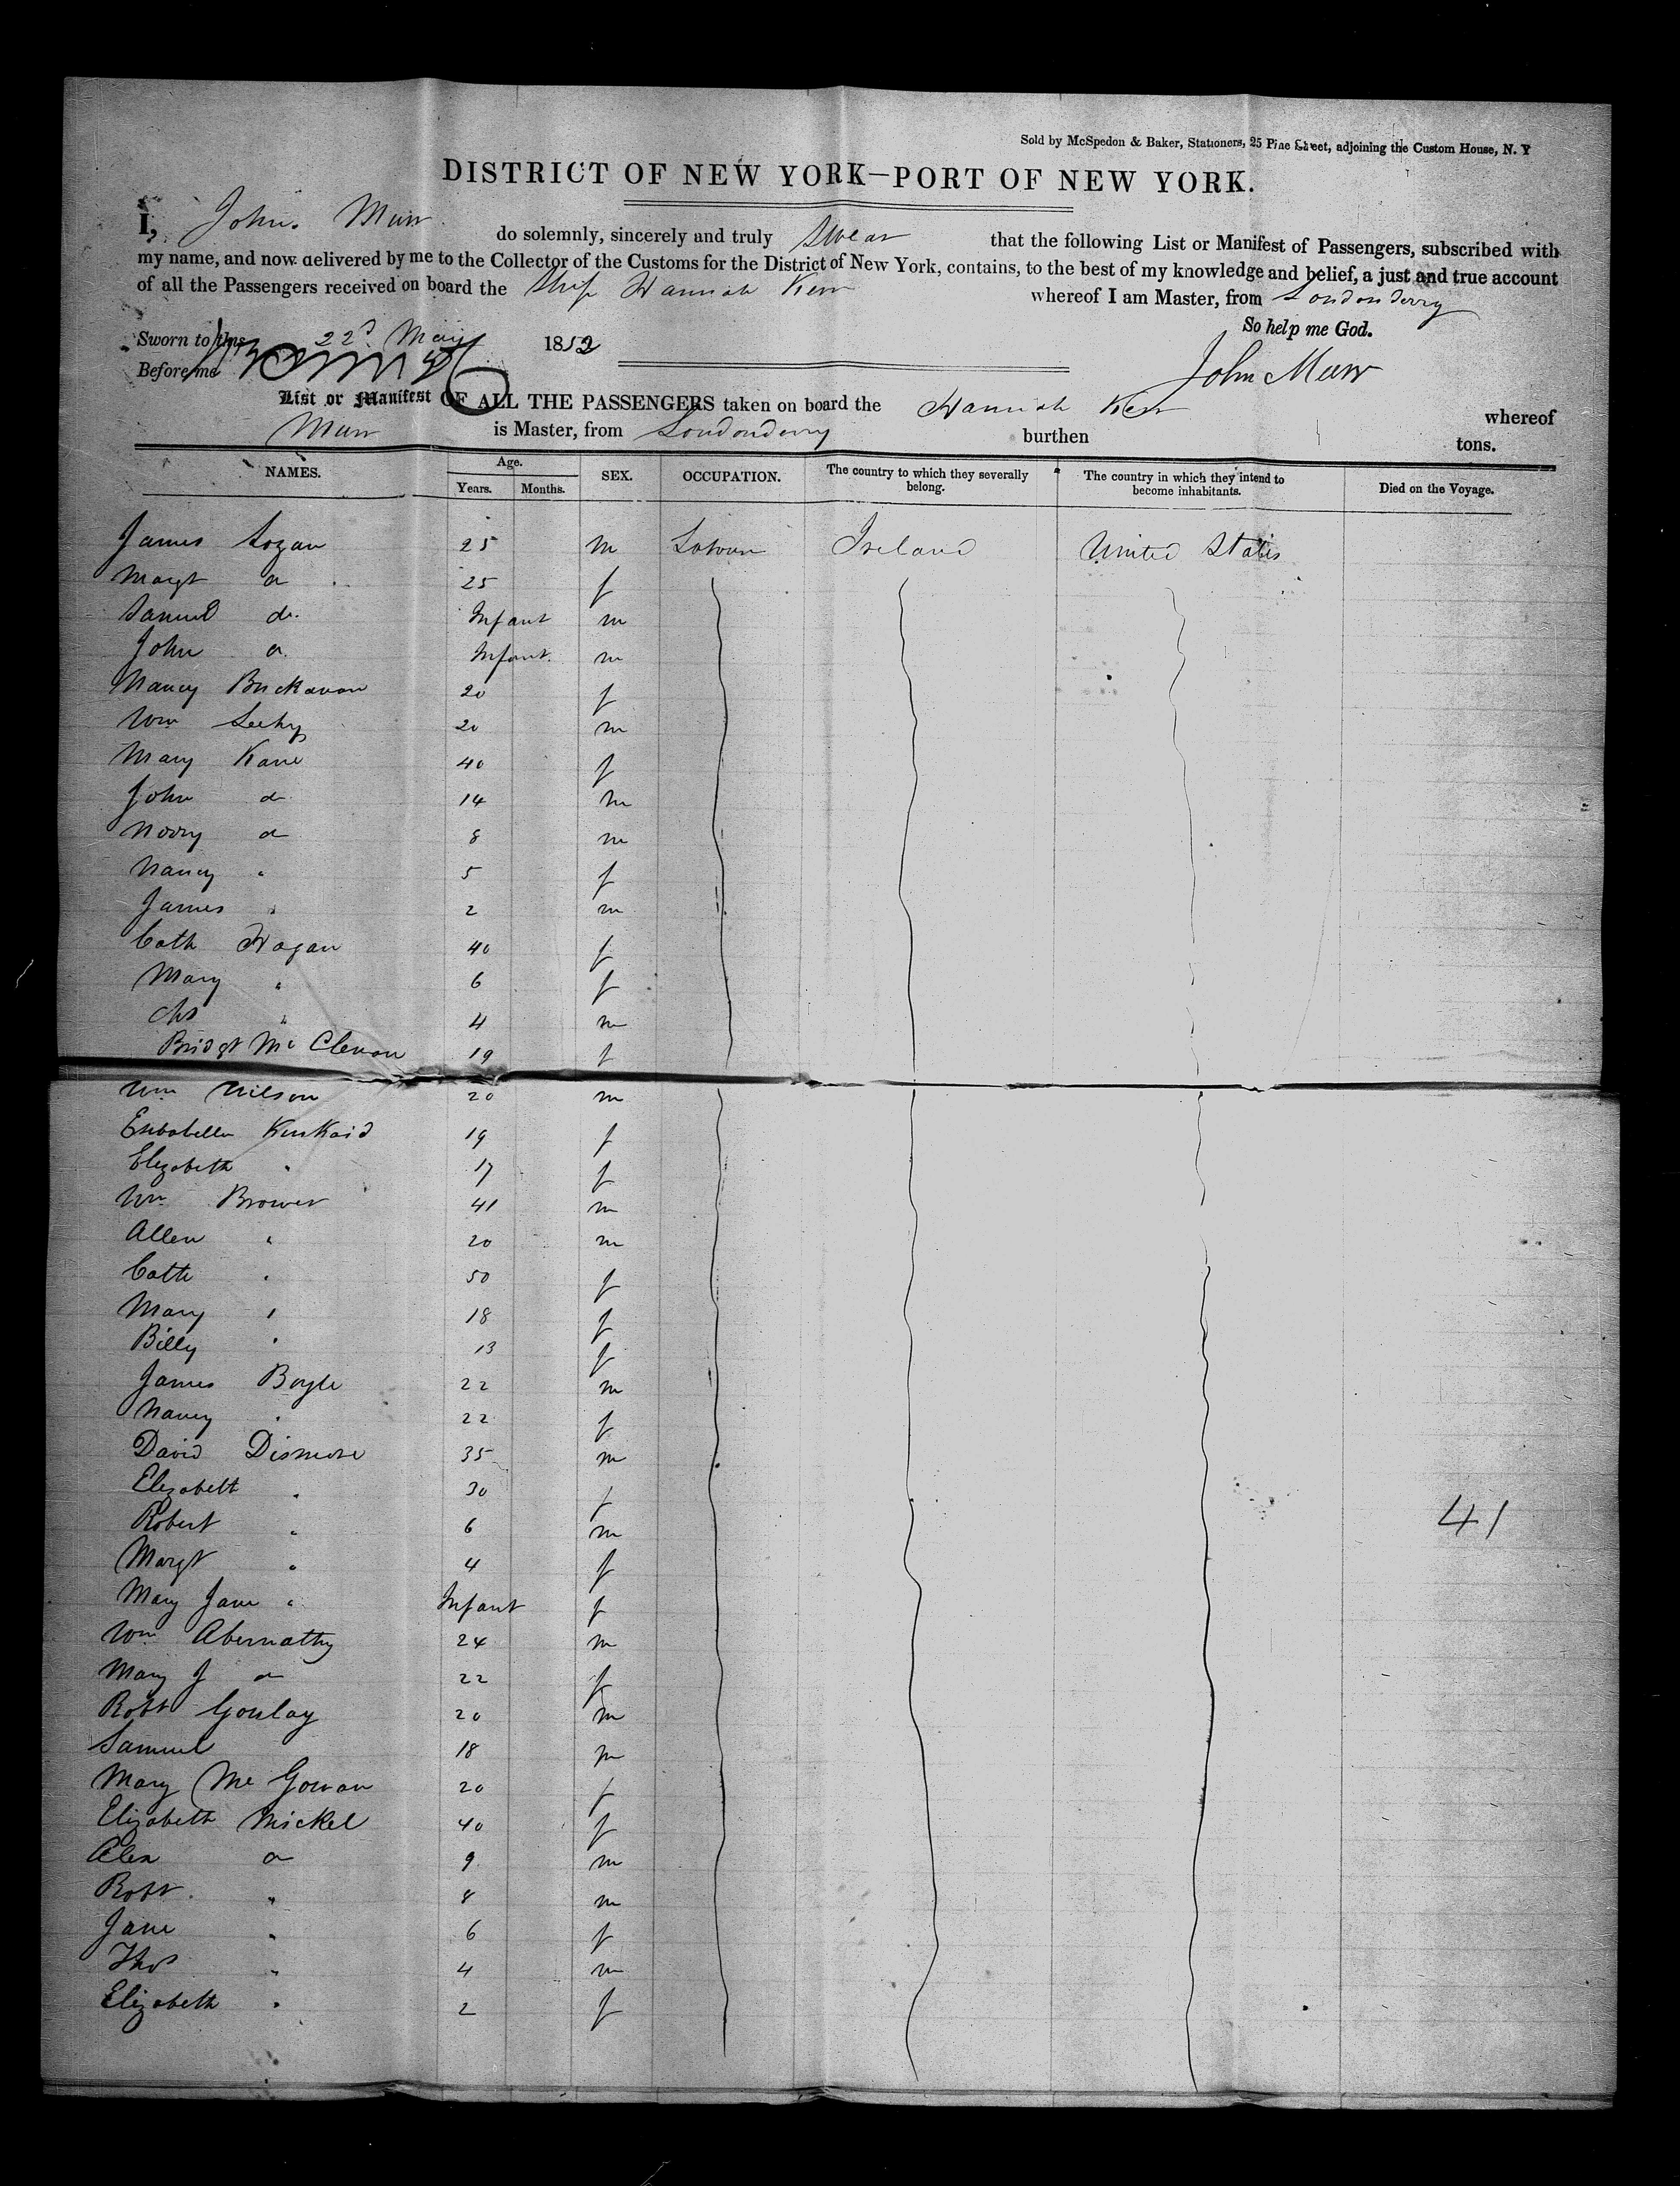 Sold by McSpedon & Baker, Stationers, 25 Pine Street, adjoining the Custom House, N. Y
DISTRICT OF NEW YORK—PORT OF NEW YORK.
I, John. Muir do solemnly, sincerely and truly swear that the following List or Manifest of Passengers, subscribed with
my name, and now delivered by me to the Collector of the Customs for the District of New York, contains, to the best of my knowledge and belief, a just and true account
of all the Passengers received on board the Ship Hannah Kerr whereof I am Master, from Londonderry
So help me God.
Sworn to this 22d May 1852
Before me
John Muir
List or Manifest OF ALL THE PASSENGERS taken on board the Hannah Kerr whereof
Muir is Master, from Londonderry burthen tons.
NAMES. Age. Years. Months. SEX. OCCUPATION. The country to which they severally belong. The country in which they intend to become inhabitants. Died on the Voyage.
James Logan 25 m Labourer Ireland United States
Margt do 25 f
Samuel do. Infant m
John do. Infant. m
Nancy Buckanan 20 f
Wm Leehy 20 m
Mary Kane 40 f
John do 14 m
do 8 m
Nancy " 5 f
James " 2 m
Cath Hagan 40 f
Mary " 6 f
Chs " 4 m
Bridgt Mc Clenon 19 f
Wm Wilson 20 m
Essabella KinKaid 19 f
Elizabeth " 17 f
Wm Brower 41 m
Allen " 20 m
Cath " 50 f
Mary " 18 f
Billy " 13 f
James Boyle 22 m
Nancy " 22 f
David Dismore 35 m
Elizabeth " 30 f
Robert " 6 m
Margt " 4 f
Mary Jane " Infant f
Wm Abernathy 24 m
Mary J do 22 f
Robt Gourlay 20 m
Samuel 18 m
Mary Mc Gowan 20 f
Elizabeth Mickel 40 f
Alex do 9 m
Robt. " 8 m
Jane " 6 f
Thos " 4 m
Elizabeth " 2 f
41